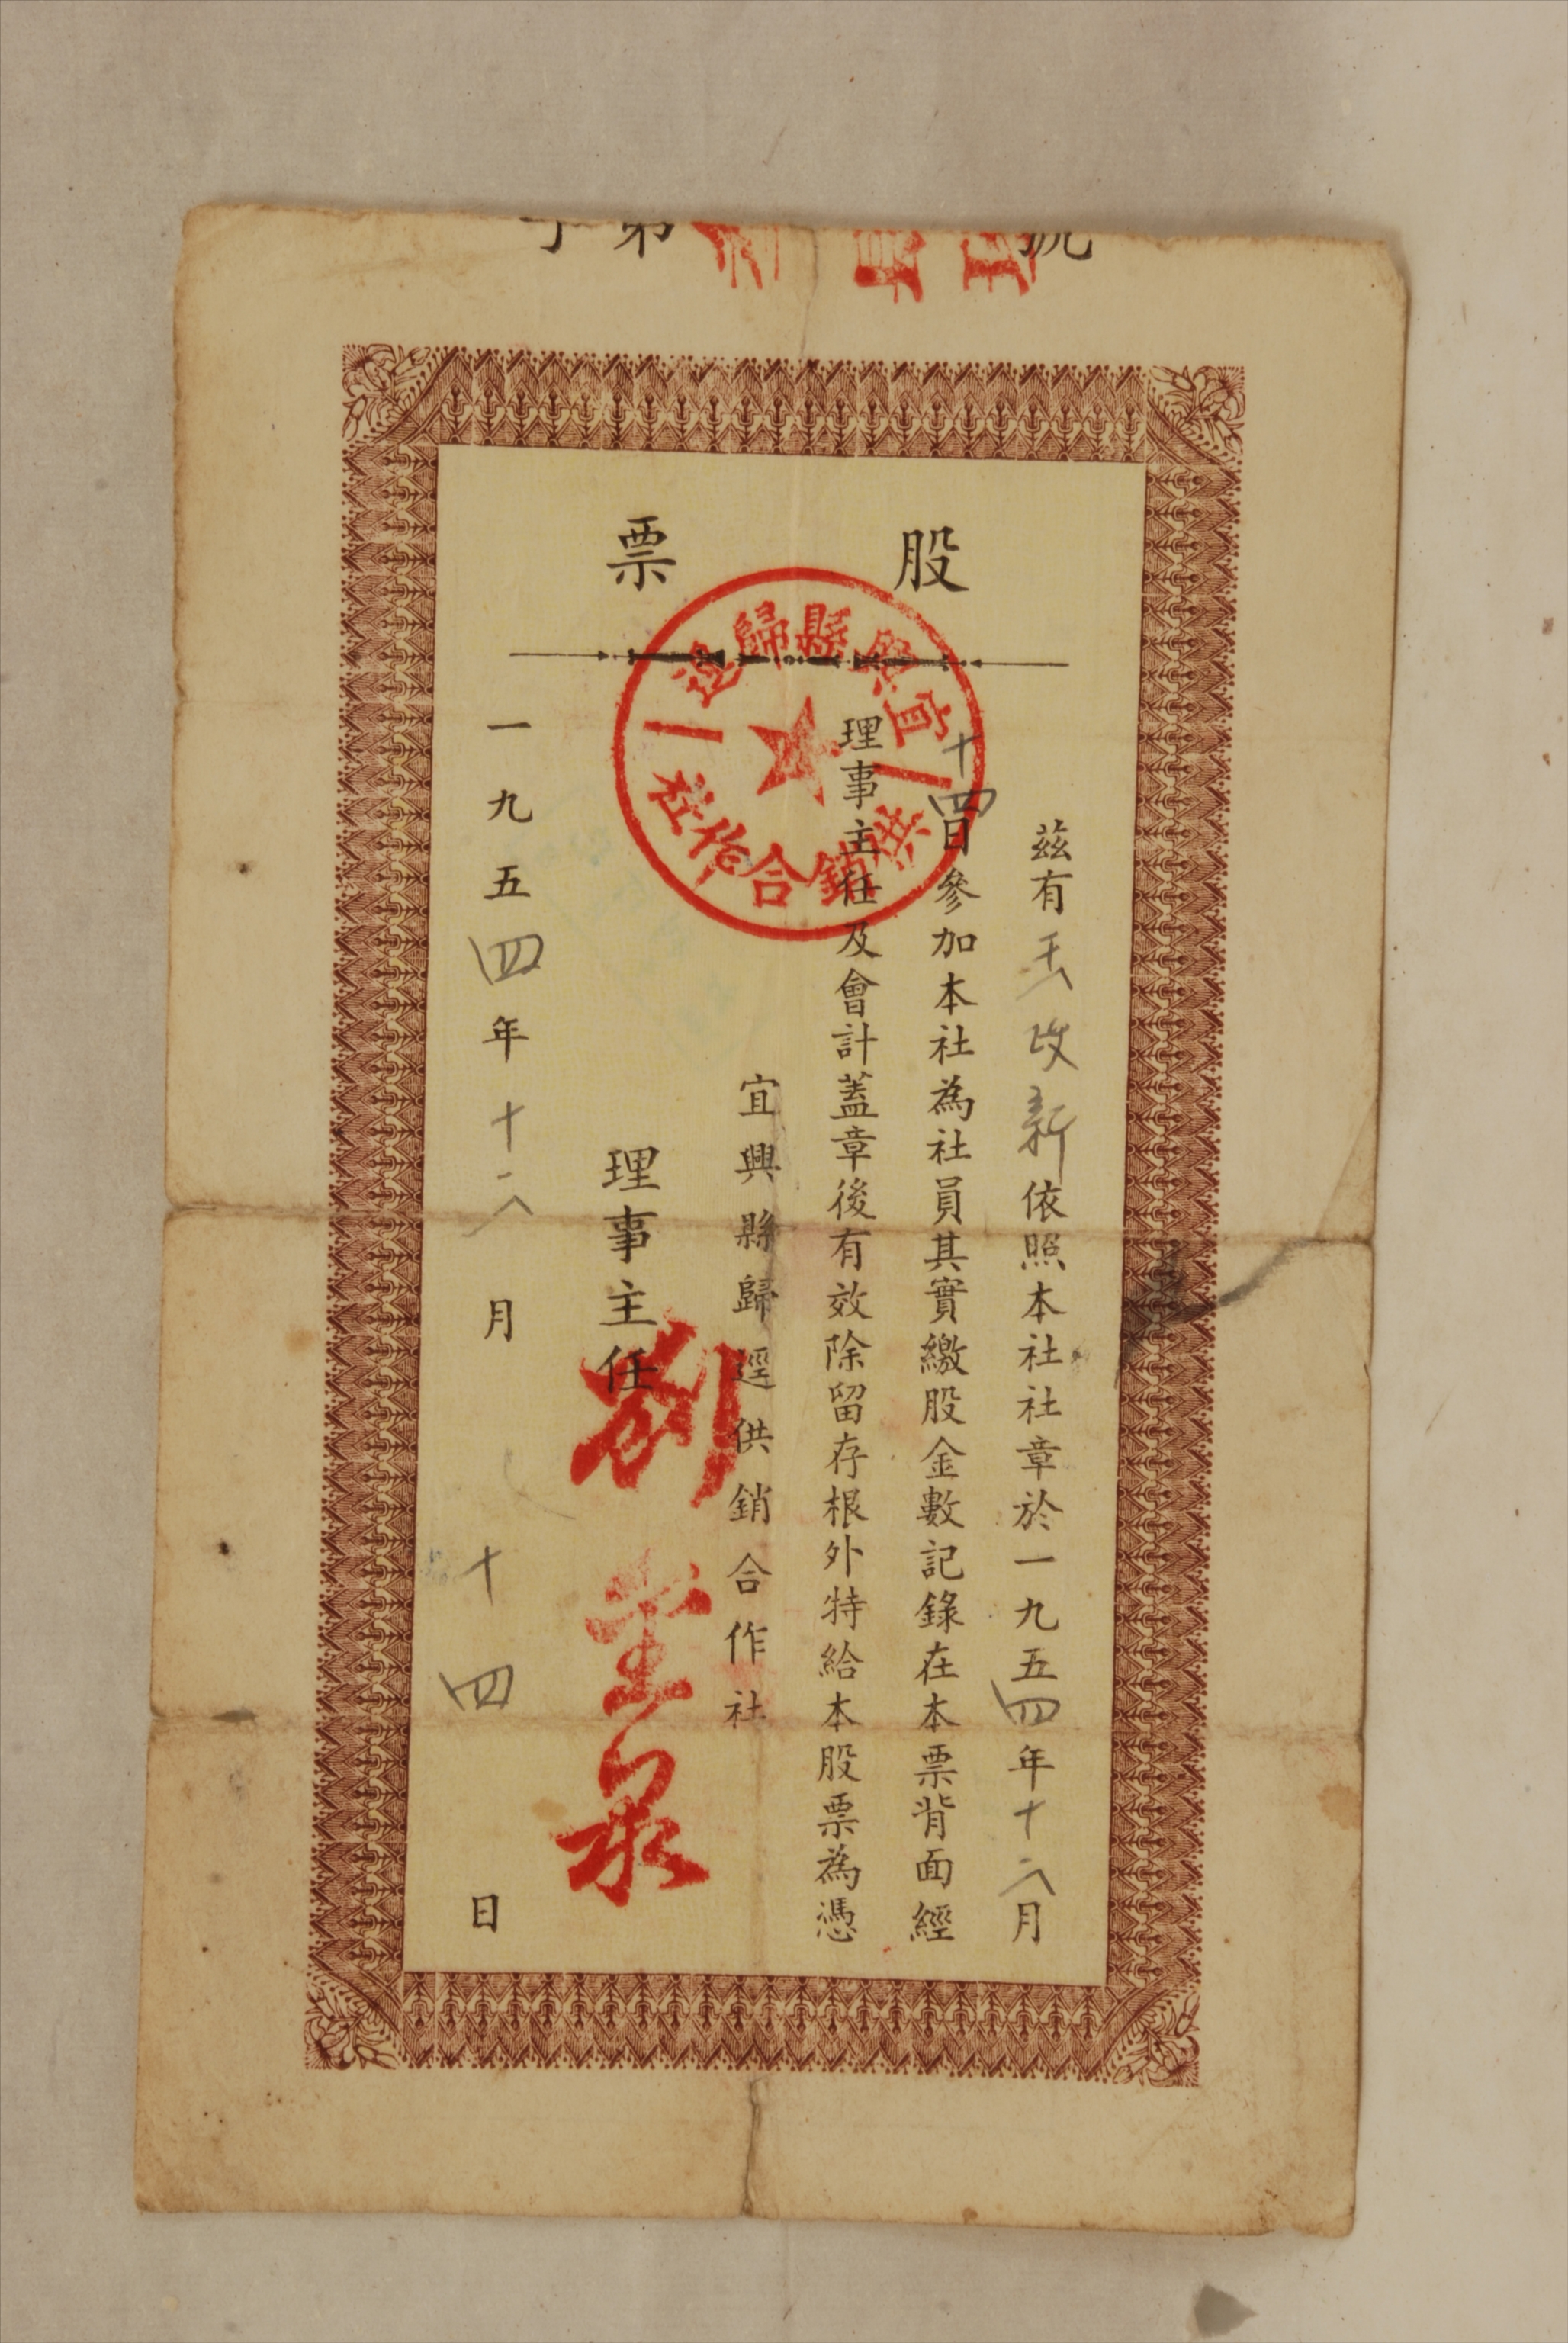 第 號
股票
茲有 改新依照本社社章於一九五四年十二月
十四日參加本社為社員其實繳股金數記錄在本票背面經
理事主任及會計蓋章後有效除留存根外特給本股票為憑
宜興縣歸逕供銷合作社
理事主任 劉 泉
一九五四年十二月十四日
宜興縣歸逕
供銷合作社